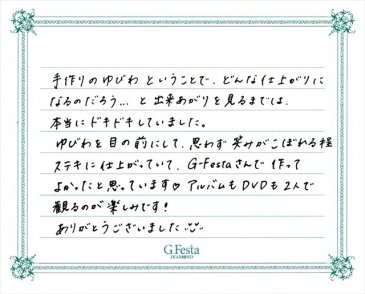 手作りのゆびわということで、どんな仕上がりに
なるのだろう…と出来あがりを見るまでは、
本当にドキドキしていました。
ゆびわを目の前にして、思わず笑みがこぼれる程
ステキに仕上がっていて、G-Festaさんで作って
よかったと思っています♡アルバムもDVDも2人で
観るのが楽しみです!
ありがとうございました
G.Festa
DIAMOND